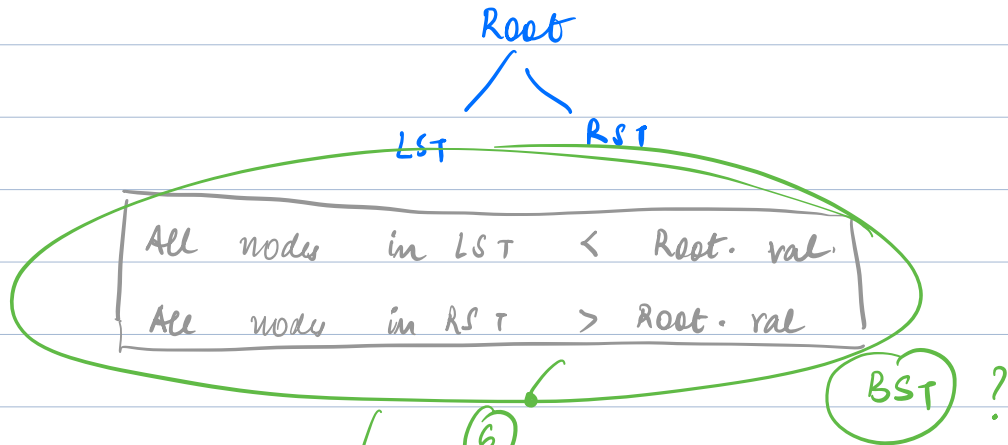 Root
LST RST
All nodes in LST < Root. val.
All nodes in RST > Root. val
BST ?
6